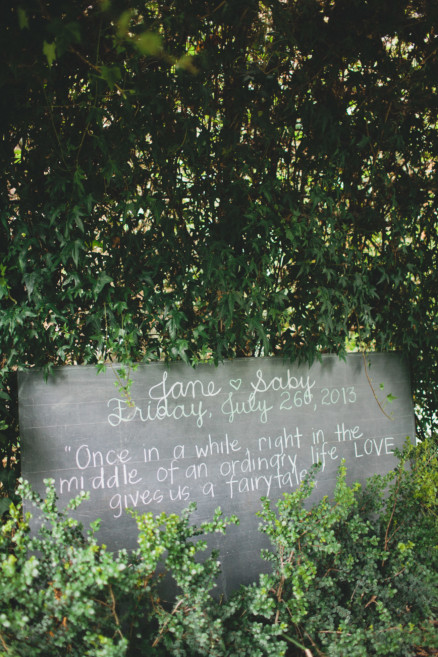 Jane ♡ Saby
Friday, July 26th, 2013
"Once in a while, right in the
middle of an ordinary life LOVE
gives us a fairytale